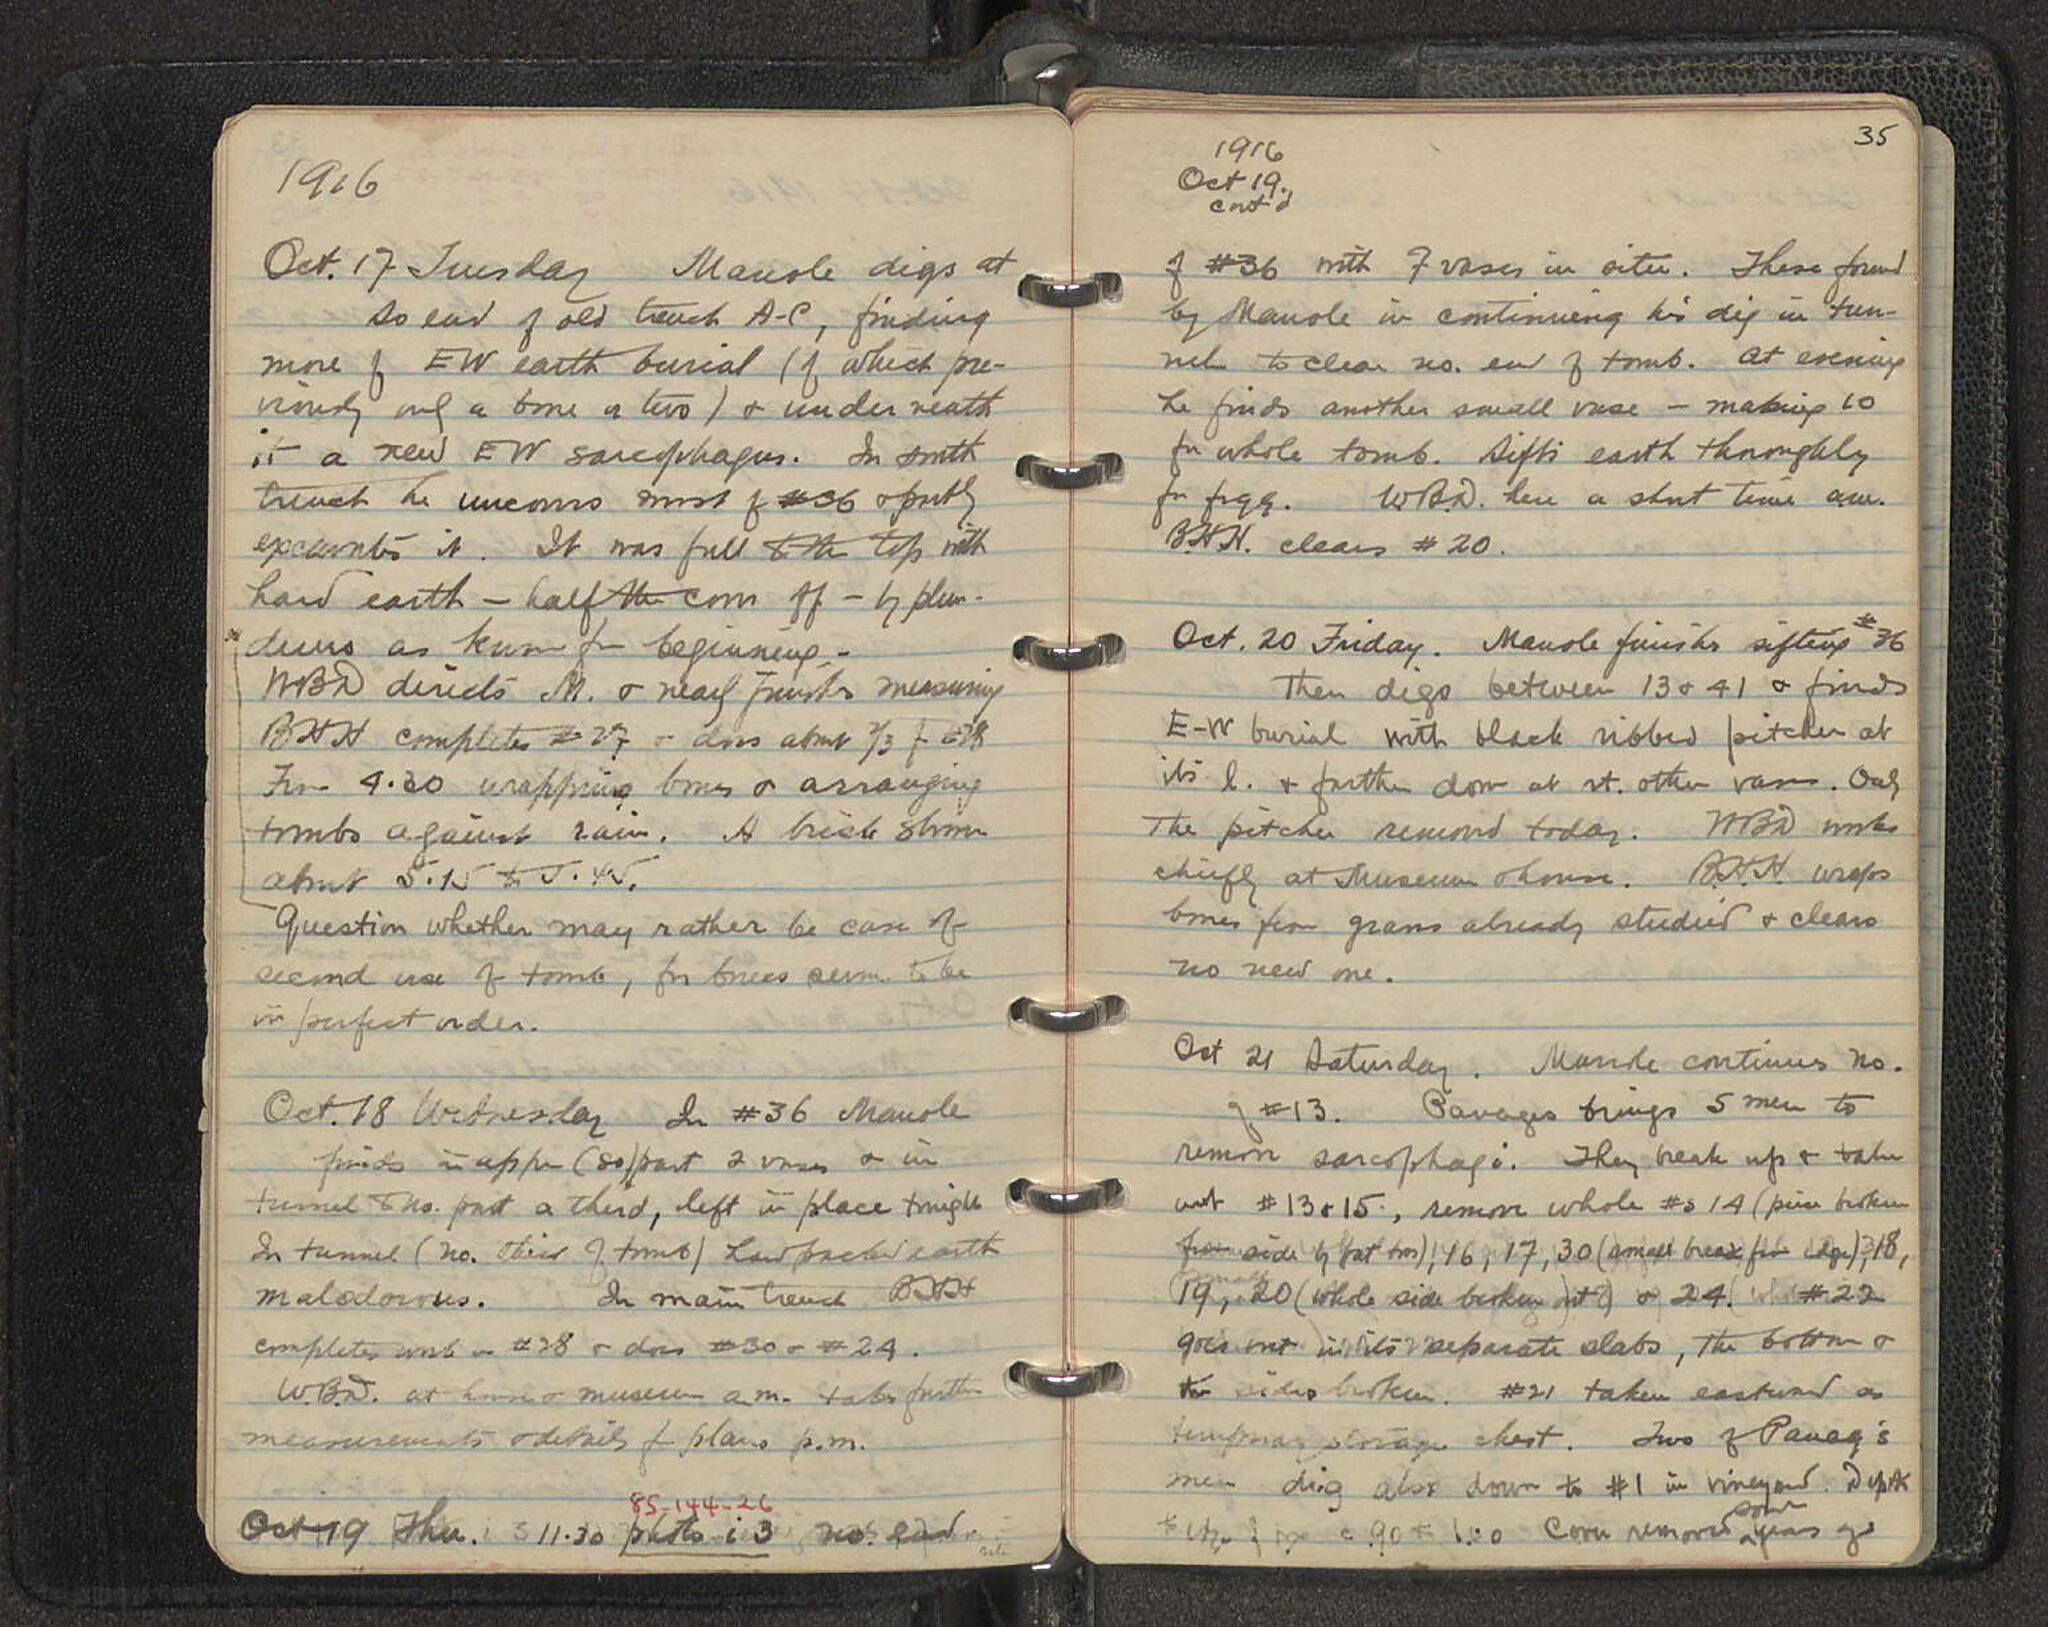 1916
Oct. 17 Tuesday Manole digs at
so end of old trench A-C, finding
more of EW earth burial (of which pre-
viously only a bone or two) & underneath
it a new EW sarcophagus. In south
trench he uncovers most of #36 & partly
excavates it. It was full to the top with
hard earth – half the cover off – by plun-
derers as known fr beginning –
WBD directs M. & nearly finishes measuring
BHH completes #27 & does about 2/3 of #28
From 4.30 wrapping bones & arranging
tombs against rain. A brisk shower
about 5.15 to 5.45.
Question whether may rather be case of
second use of tomb, for bones seem to be
in perfect order.
Oct. 18 Wednesday In #36 Manole
finds in upper (so) part 2 vases & in
tunnel to no. part a third, left in place tonight
In tunnel (no. third of tomb) hard packed earth
malodorous. In main trench BHH
completes work on #28 & does #30 & #24.
W.B.D. at house & museum a.m. takes further
measurements & details for plans p.m.
85-144-26
Oct 19 Thu. 11.30 photo i 3 no. end
35
1916
Oct 19.,
cont'd
of #36 with 7 vases in situ. These found
by Manole in continuing his dig in tun-
nel to clear no. end of tomb. At evening
he finds another small vase – making 10
for whole tomb. Sifts earth thoroughly
for frgg. W.B.D. here a short time a.m.
B.H.H. clears #20.
Oct. 20 Friday. Manole finishes sifting #36
Then digs between 13 & 41 & finds
E-W burial with black ribbed pitcher at
its l. & further down at rt. other vases. Only
the pitcher removed today. WBD works
chiefly at Museum & house. B.H.H. wraps
bones from graves already studied & clears
no new one.
Oct 21 Saturday. Manole continues no.
of #13. Panages brings 5 men to
remove sarcophagi. They break up & take
out #13 & 15, remove whole #s 14 (piece broken
from side by), 16, 17, 30 (small break from edge), 18,
19, 20 (whole side broken out) & 24. #22
goes out in its separate slabs, the bottom &
the sides broken. #21 taken eastward as
temporary storage chest. Two of Panag's
men dig also down to #1 in vineyard. Depth
to .90 to 1.00 Cover removed some years ago